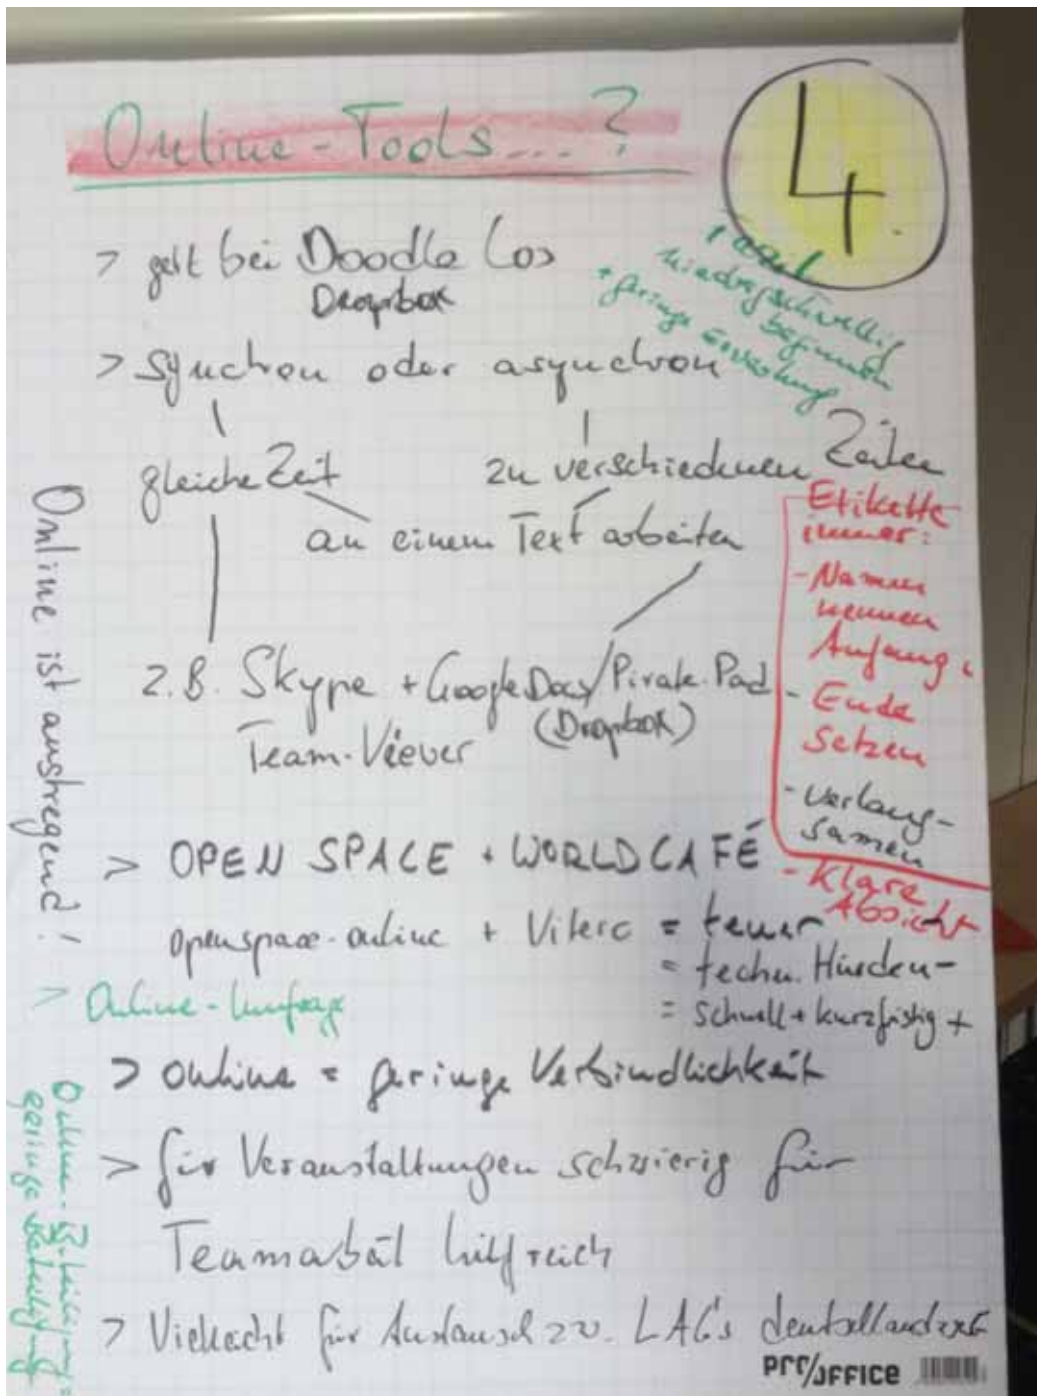 Online-Tools...?
4.
> geht bei Doodle los
Dropbox
niedrigschwellig
beginnen
+ geringe Erwartung
> synchron oder asynchron
gleiche Zeit
zu verschiedenen Zeiten
an einem Text arbeiten
z.B. Skype + GoogleDocs/Pirate-Pad
(Dropbox)
Team-Viever
Etikette
immer:
- Namen
nennen
Anfang
- Ende
setzen
- verlang-
samen
- Klare
Absicht
Online ist anstregend!
> OPEN SPACE + WORLDCAFÉ
openspace-online + Vitero = teuer
= techn. Hürden -
= schnell + kurzfristig +
> Online-Umfrage
> online = geringe Verbindlichkeit
> für Veranstaltungen schwierig für
Teamarbeit hilfreich
> Vielleicht für Austausch zw. LAGs deutschlandweit
Online-Beteiligung =
geringe Beteiligung
Pro/OFFICE